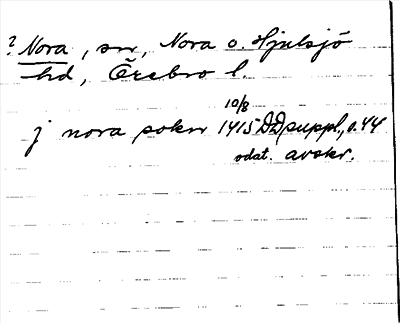 ? Nora, sn, Nora o. Hjulsjö
hd, Örebro l.
10/8
j nora sokn 1415 DD suppl., s. 44
odat. avskr.